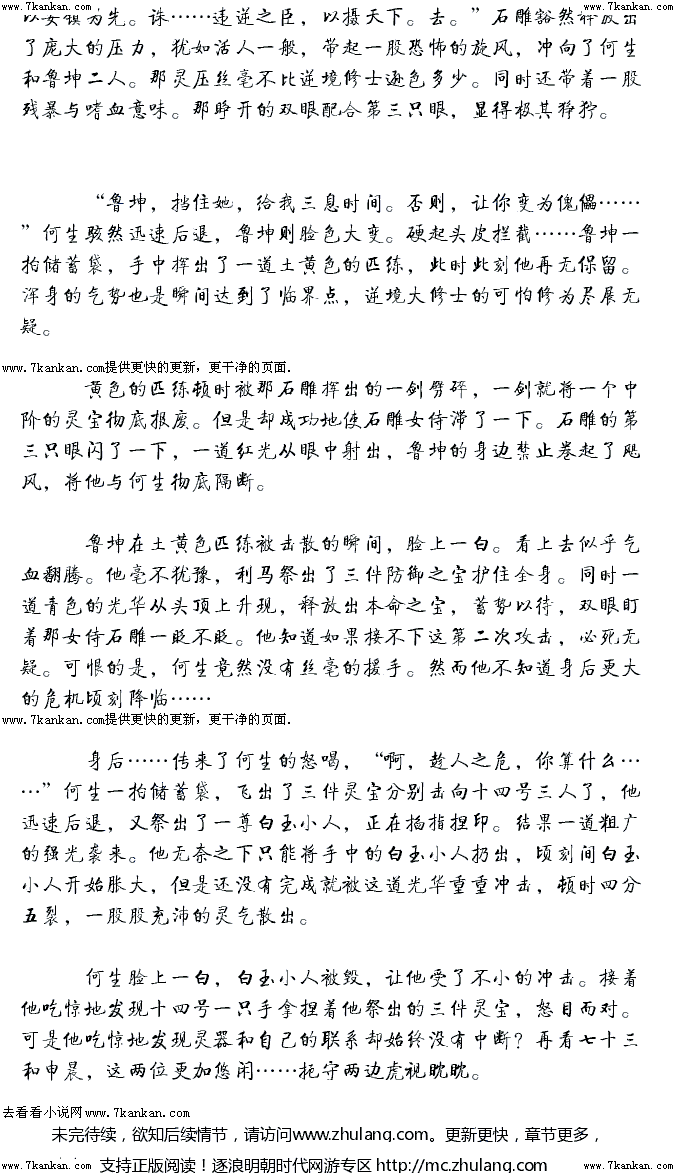 www.7kankan.com www.7kankan.com
以安镇为先。诛……违逆之臣，以摄天下。去。”石雕豁然释放出
了庞大的压力，犹如活人一般，带起一股恐怖的旋风，冲向了何生
和鲁坤二人。那灵压丝毫不比逆境修士逊色多少。同时还带着一股
残暴与嗜血意味。那睁开的双眼配合第三只眼，显得极其狰狞。
“鲁坤，挡住她，给我三息时间。否则，让你变为傀儡……
”何生骇然迅速后退，鲁坤则脸色大变。硬起头皮拦截……鲁坤一
拍储蓄袋，手中挥出了一道土黄色的匹练，此时此刻他再无保留。
浑身的气势也是瞬间达到了临界点，逆境大修士的可怕修为尽展无
疑。
www.7kankan.com提供更快的更新，更干净的页面.
黄色的匹练顿时被那石雕挥出的一剑劈碎，一剑就将一个中
阶的灵宝彻底报废。但是却成功地使石雕女侍滞了一下。石雕的第
三只眼闪了一下，一道红光从眼中射出，鲁坤的身边禁止卷起了飓
风，将他与何生彻底隔断。
鲁坤在土黄色匹练被击散的瞬间，脸上一白。看上去似乎气
血翻腾。他毫不犹豫，利马祭出了三件防御之宝护住全身。同时一
道青色的光华从头顶上升现，释放出本命之宝，蓄势以待，双眼盯
着那女侍石雕一眨不眨。他知道如果接不下这第二次攻击，必死无
疑。可恨的是，何生竟然没有丝毫的援手。然而他不知道身后更大
的危机顷刻降临……
www.7kankan.com提供更快的更新，更干净的页面.
身后……传来了何生的怒喝，“啊，趁人之危，你算什么…
…”何生一拍储蓄袋，飞出了三件灵宝分别击向十四号三人了，他
迅速后退，又祭出了一尊白玉小人，正在掐指捏印。结果一道粗广
的强光袭来。他无奈之下只能将手中的白玉小人扔出，顷刻间白玉
小人开始胀大，但是还没有完成就被这道光华重重冲击，顿时四分
五裂，一股股充沛的灵气散出。
何生脸上一白，白玉小人被毁，让他受了不小的冲击。接着
他吃惊地发现十四号一只手拿捏着他祭出的三件灵宝，怒目而对。
可是他吃惊地发现灵器和自己的联系却始终没有中断？再看七十三
和申晨，这两位更加悠闲……扼守两边虎视眈眈。
去看看小说网www.7kankan.com
未完待续，欲知后续情节，请访问www.zhulang.com。更新更快，章节更多，
支持正版阅读！逐浪明朝时代网游专区 http://mc.zhulang.com
www.7kankan.com www.7kankan.com